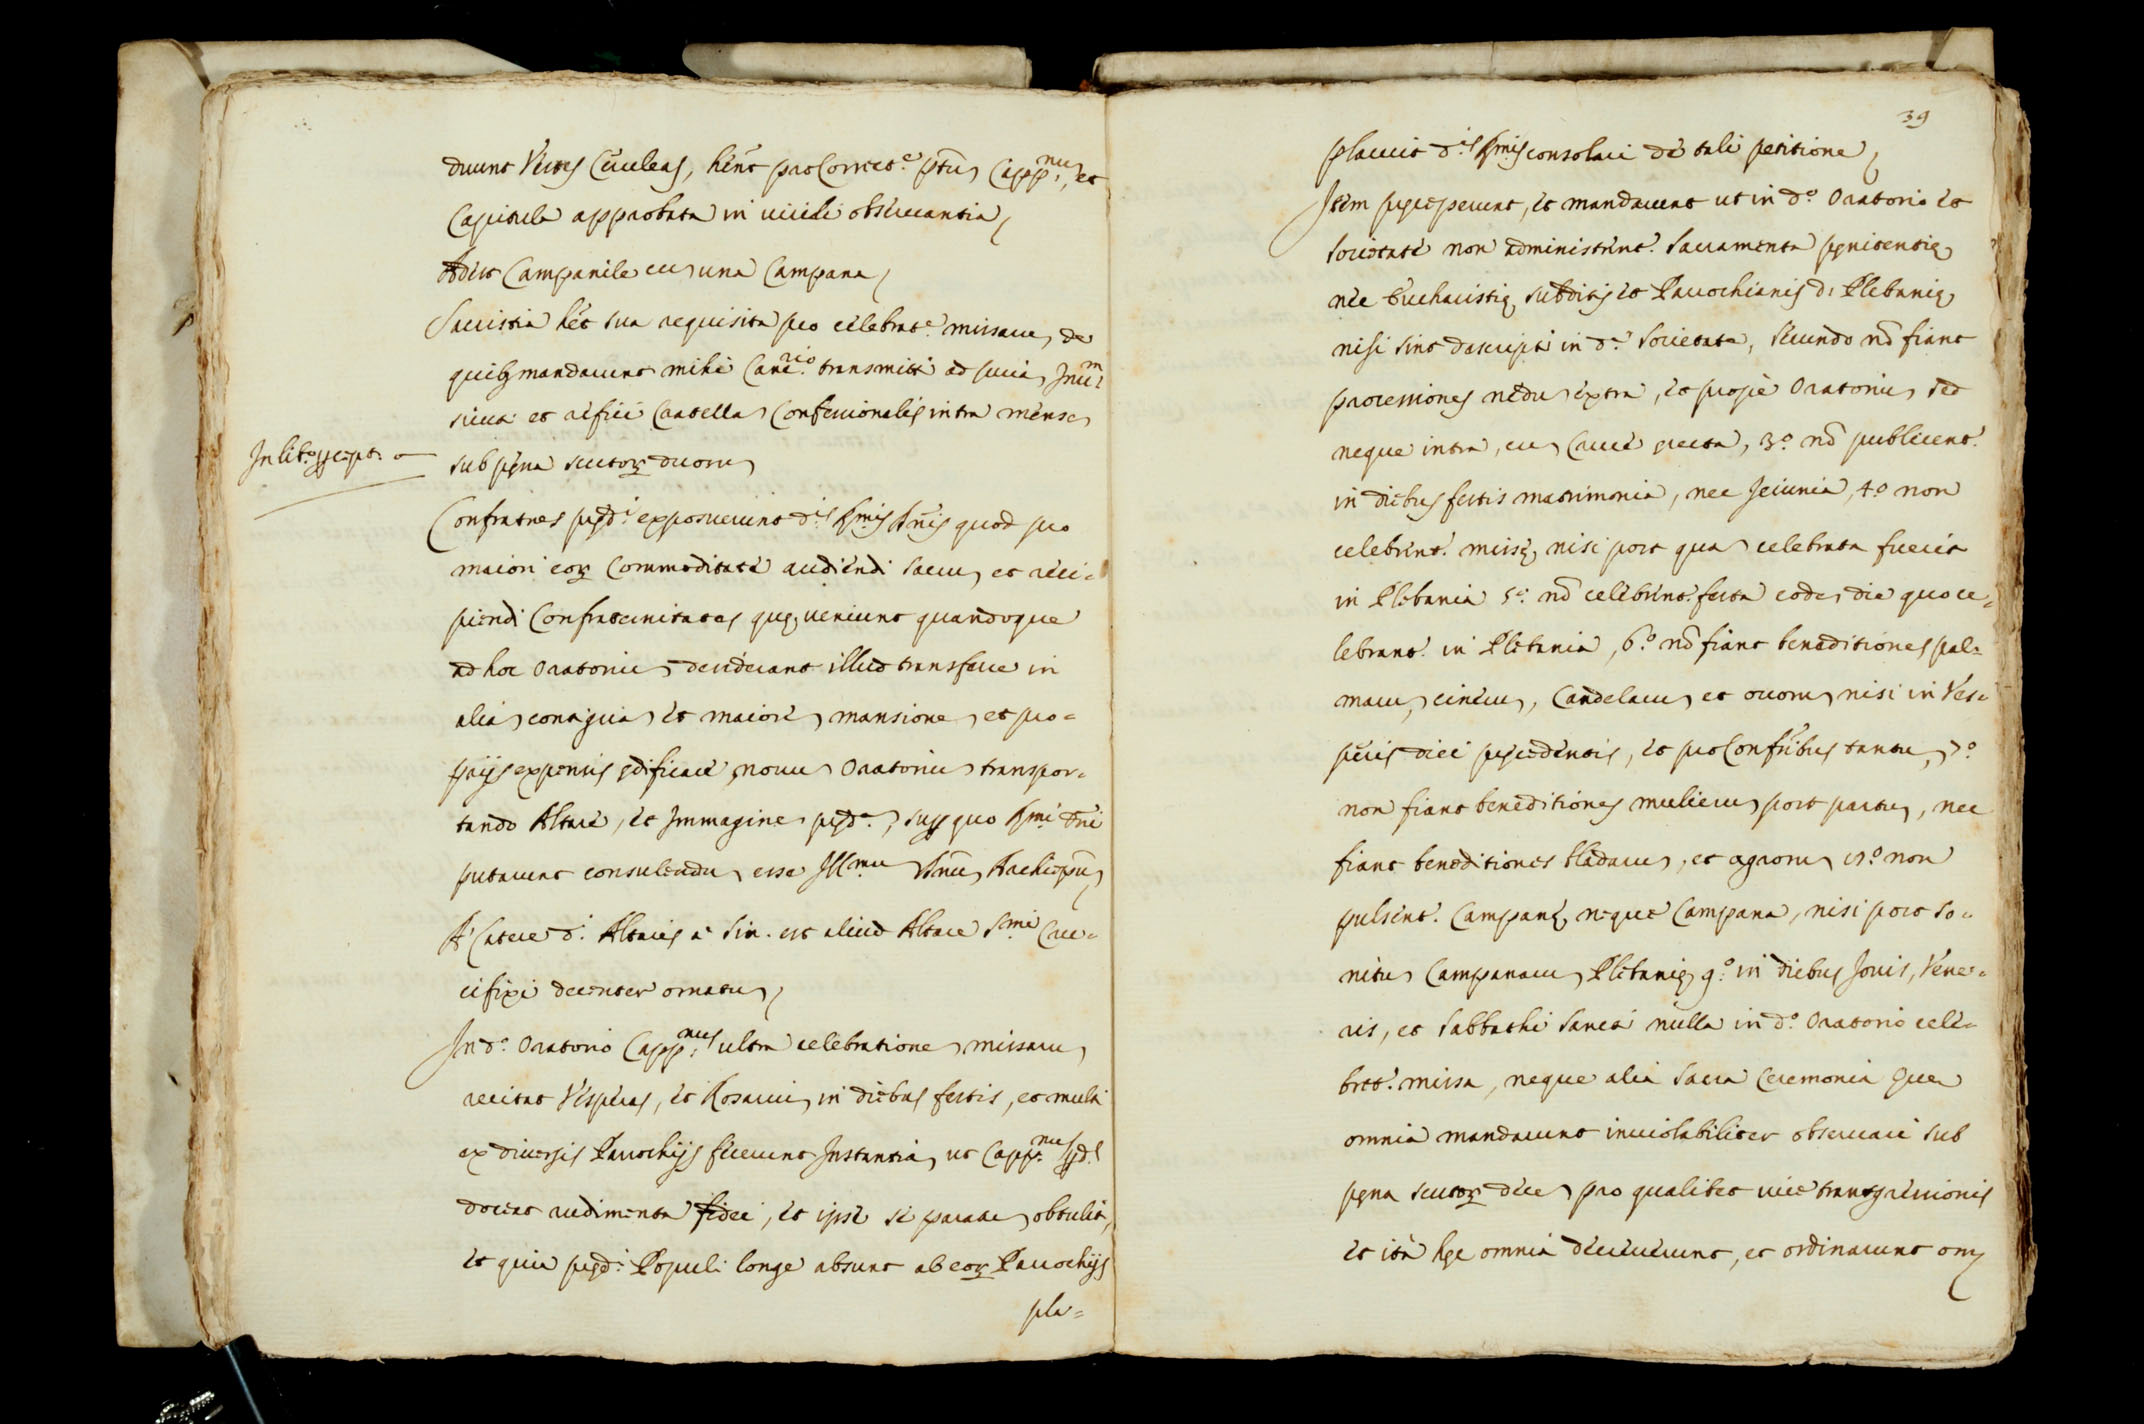 duunt Vestes Ceruleas, hent pro Correct.e ptũ Capp.num, et
Capitula approbata in viridi obseruantia
Adest Campanile cũ una Campana
Sacristia het sua requisita pro celebrat.e missarũ, de
quibꝫ mandauerunt mihi Canc.rio transmitti ad Curiã Inu.m
sicut et refici Cratellas Confessionalis intra mensẽ
sub pęna scutorꝝ duorũ
Confratres pręd.i exposuerunt d.is Rmis Dñis quod pro
maiori eorꝝ Commoditate audiendi Sacrũ, et reci=
piendi Confraternitates quę ueniunt quandoque
ad hoc Oratoriũ desiderant illud transferre in
aliã contiguã et maiorẽ mansionẽ, et pro=
prijs expensis ędificare nouũ Oratoriũ transpor=
tando Altare, et Immaginẽ pręd.ã, super quo Rmi Dñi
putauerunt consulendũ esse Ill.mũ Dñũ Archiepũ
A Latere d.i Altaris a sin. est aliud Altare S.mi Cru=
cifixi decenter ornatũ
In d.o Oratorio Capp.nus ultra celebrationẽ missarũ
recitat Vesperas, et Rosariũ in diebus festis, et multi
ex diuersis Parochijs fecerunt Instantiã, ut Capp.nus pd.s
doceat rudimenta fidei, et ipse se paratũ obtulit,
et quia pręd.i Populi longe absunt ab eorꝝ Parochijs
pla=
In lib.o
39
placuit d.is Rmis consolari de tali petitione
Item pręceperunt, et mandauerunt ut in d.o Oratorio et
societate non administrent.r Sacramenta pęnitentię
nec Eucharistię subditis et Parochianis d.ę Plebanię
nisi sint descripti in d.a Societate, secundo nõ fiant
processiones nedũ extra, et prope Oratoriũ sed
neque intra, cũ Cruce erecta, 3.o nõ publicent.r
in diebus festis matrimonia, nec Jeiunia, 4.o non
celebrent.r missę, nisi post quã celebrata fuerit
in Plebania 5.o nõ celebrent.r festa eodẽ die quo ce=
lebrant.r in Plebania, 6.o nõ fiant benedictiones pal=
marũ, cinerũ, Candelarũ et ouorũ nisi in Ves=
peris diei pręcedentis, et pro Confrĩbus tantũ, 7.o
non fiant benedictiones mulierũ post partũ, nec
fiant benedictiones bladarũ, et agrorũ 8.o non
pulsent.r Campanę, neque Campana, nisi post so=
nitũ Campanarũ Plebanię, 9.o in diebus Jouis, Vene=
ris, et Sabbathi Sancti nulla in d.o Oratorio cele=
bret.r missa, neque alia Sacra Ceremonia Quę
omnia mandauerunt inuiolabiliter obseruari sub
pęna scutorꝝ decẽ pro qualibet uice transgressionis
et ita hęc omnia decreuerunt, et ordinauerunt omĩ